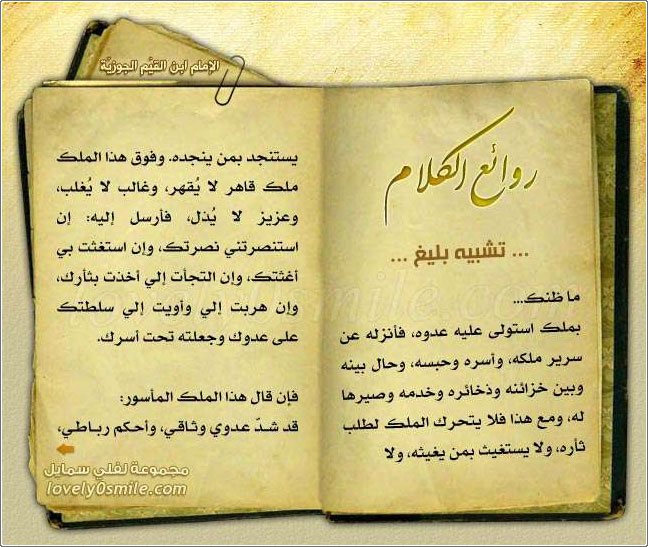 الإمام ابن القيّم الجوزيّة
روائع الكلام
... تشبيه بليغ ...
ما ظنك...
بملك استولى عليه عدوه، فأنزله عن
سرير ملكه، وأسره وحبسه، وحال بينه
وبين خزائنه وذخائره وخدمه وصيرها
له، ومع هذا فلا يتحرك الملك لطلب
ثأره، ولا يستغيث بمن يغيثه، ولا
يستنجد بمن ينجده. وفوق هذا الملك
ملك قاهر لا يُقهر، وغالب لا يُغلب،
وعزيز لا يُذل، فأرسل إليه: إن
استنصرتني نصرتك، وإن استغثت بي
أغثتك، وإن التجأت إلي أخذت بثأرك،
وإن هربت إلي وأويت إلي سلطتك
على عدوك وجعلته تحت أسرك.
فإن قال هذا الملك المأسور:
قد شدّ عدوي وثاقي، وأحكم رباطي،
مجموعة لفلي سمايل
lovely0smile.com